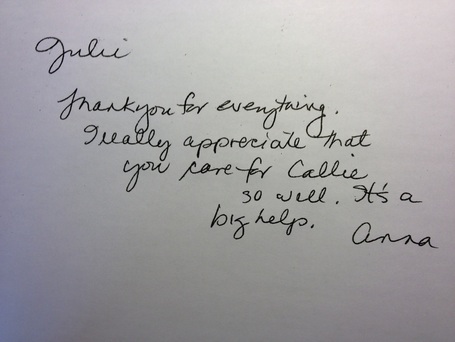 Julie
Thankyou for everything.
I really appreciate that
you care for Callie
so well. It's a
big help.
Anna